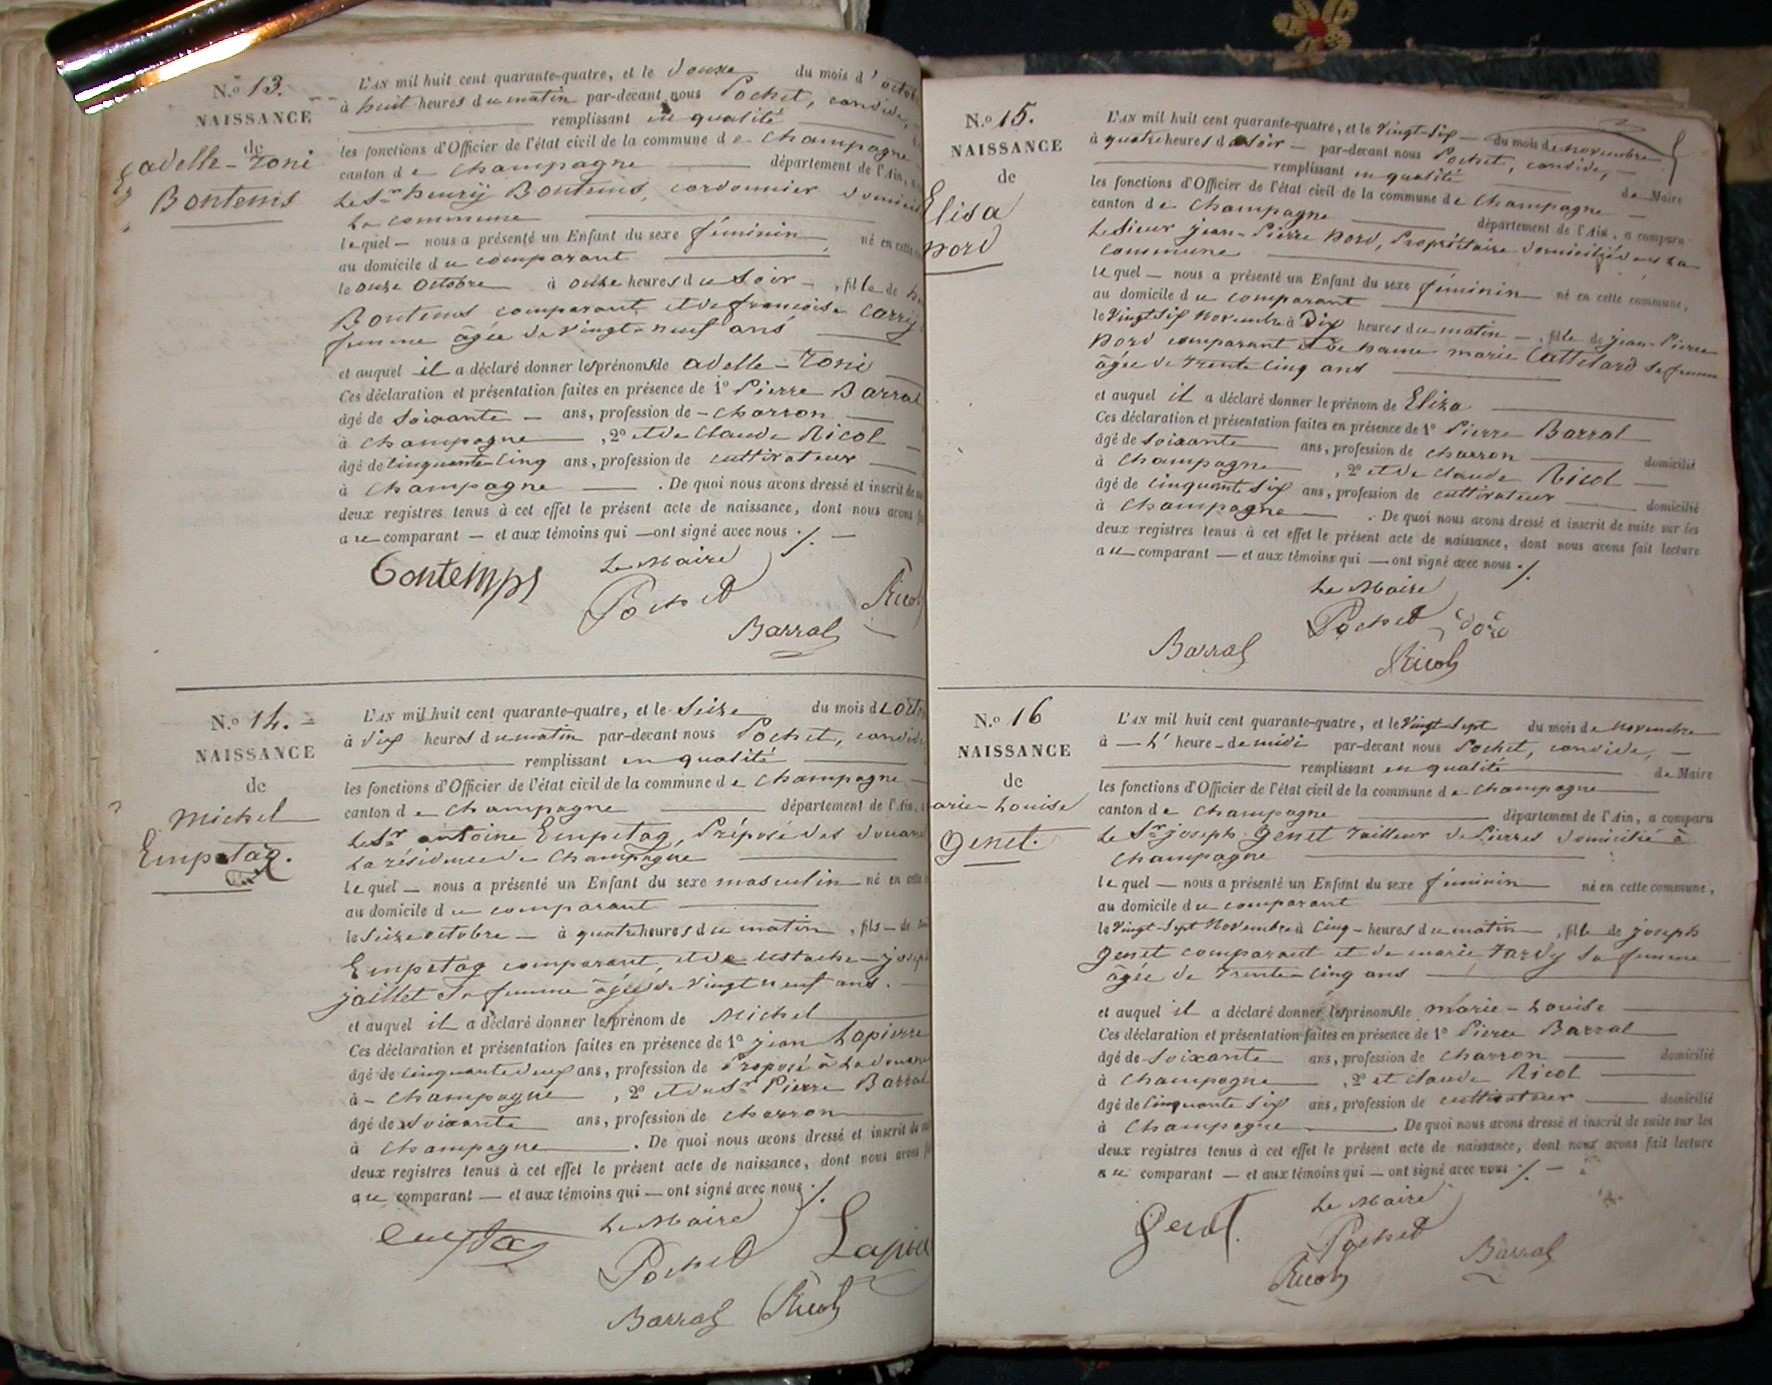 N.º 13.
NAISSANCE
de
adelle - Zoni
Bontems
L'AN mil huit cent quarante-quatre, et le douze du mois d'octob
à huit heures du matin par-devant nous Pochet, candide,
remplissant en qualité
les fonctions d'Officier de l'état civil de la commune de Champagne
canton de Champagne département de l'Ain,
Le Sr henrij Bontems, cordonnier domicil
La commune
lequel — nous a présenté un Enfant du sexe féminin, né en cette
au domicile du comparant
le onze octobre à onze heures du soir, fille de
Bontems comparant et de françoise Carrij
femme âgée de vingt-neuf ans
et auquel il a déclaré donner les prénoms de adelle - Zoni
Ces déclaration et présentation faites en présence de 1º Pierre Barral
âgé de soixante — ans, profession de - charron
à Champagne, 2º et de Claude Ricol
âgé de cinquante-cinq ans, profession de cultivateur
à Champagne. De quoi nous avons dressé et inscrit de
deux registres tenus à cet effet le présent acte de naissance, dont nous avons
au comparant — et aux témoins qui — ont signé avec nous ./. —
Bontemps
Le Maire
Pochet
Ricol
Barral
N.º 14.
NAISSANCE
de
Michel
Empetaz.
L'AN mil huit cent quarante-quatre, et le seize du mois d'octo
à dix heures du matin par-devant nous Pochet, candide
remplissant en qualité
les fonctions d'Officier de l'état civil de la commune de Champagne
canton de Champagne département de l'Ain,
Le Sr antoine Empetaz, Préposé des douane
La résidence de Champagne
lequel — nous a présenté un Enfant du sexe masculin né en cette
au domicile du comparant
le seize octobre — à quatre heures du matin, fils — de
Empetaz comparant, et de eustache - josep
jaillet sa femme âgée de vingt neuf ans.
et auquel il a déclaré donner le prénom de Michel
Ces déclaration et présentation faites en présence de 1º jean Lapierre
âgé de cinquante deux ans, profession de Préposé à la douane
à - Champagne, 2º et du Sr Pierre Barral
âgé de soixante ans, profession de charron
à Champagne. De quoi nous avons dressé et inscrit de
deux registres tenus à cet effet le présent acte de naissance, dont nous avons
au comparant — et aux témoins qui — ont signé avec nous ./.
Le Maire
Pochet
Barral
Ricol
N.º 15.
NAISSANCE
de
Elisa
Dord
L'AN mil huit cent quarante-quatre, et le vingt-six — du mois de novembre
à quatre heures du soir — par-devant nous Pochet, candide,
remplissant en qualité de Maire
les fonctions d'Officier de l'état civil de la commune de Champagne
canton de Champagne département de l'Ain, a comparu
Le sieur jean-Pierre Dord, Propriétaire domicilié dans la
commune
lequel — nous a présenté un Enfant du sexe féminin né en cette commune,
au domicile du comparant
le vingt six novembre à dix heures du matin —, fille de jean-Pierre
Dord comparant et de dame marie Cattelard sa femme
âgée de trente cinq ans
et auquel il a déclaré donner le prénom de Eliza
Ces déclaration et présentation faites en présence de 1º Pierre Barral
âgé de soixante ans, profession de charron domicilié
à Champagne, 2º et de Claude Ricol
âgé de cinquante six ans, profession de cultivateur domicilié
à Champagne. De quoi nous avons dressé et inscrit de suite sur les
deux registres tenus à cet effet le présent acte de naissance, dont nous avons fait lecture
au comparant — et aux témoins qui — ont signé avec nous ./.
Le Maire
Pochet
Dord
Barral
Ricol
N.º 16
NAISSANCE
de
arie - Louise
Genet.
L'AN mil huit cent quarante-quatre, et le vingt-sept du mois de novembre
à — L'heure - de midi par-devant nous Pochet, candide, —
remplissant en qualité de Maire
les fonctions d'Officier de l'état civil de la commune de Champagne
canton de Champagne département de l'Ain, a comparu
Le Sr joseph Genet tailleur de Pierres domicilié à
Champagne
lequel — nous a présenté un Enfant du sexe féminin né en cette commune,
au domicile du comparant
le vingt-sept novembre à cinq - heures du matin, fille de joseph
Genet comparant et de marie Tardy sa femme
âgée de trente-cinq ans
et auquel il a déclaré donner les prénoms de marie - Louise
Ces déclaration et présentation faites en présence de 1º Pierre Barral
âgé de soixante ans, profession de charron domicilié
à Champagne, 2º et Claude Ricol
âgé de cinquante six ans, profession de cultivateur domicilié
à Champagne. De quoi nous avons dressé et inscrit de suite sur les
deux registres tenus à cet effet le présent acte de naissance, dont nous avons fait lecture
au comparant — et aux témoins qui — ont signé avec nous ./. —
Le Maire
Genet
Pochet
Ricol
Barral